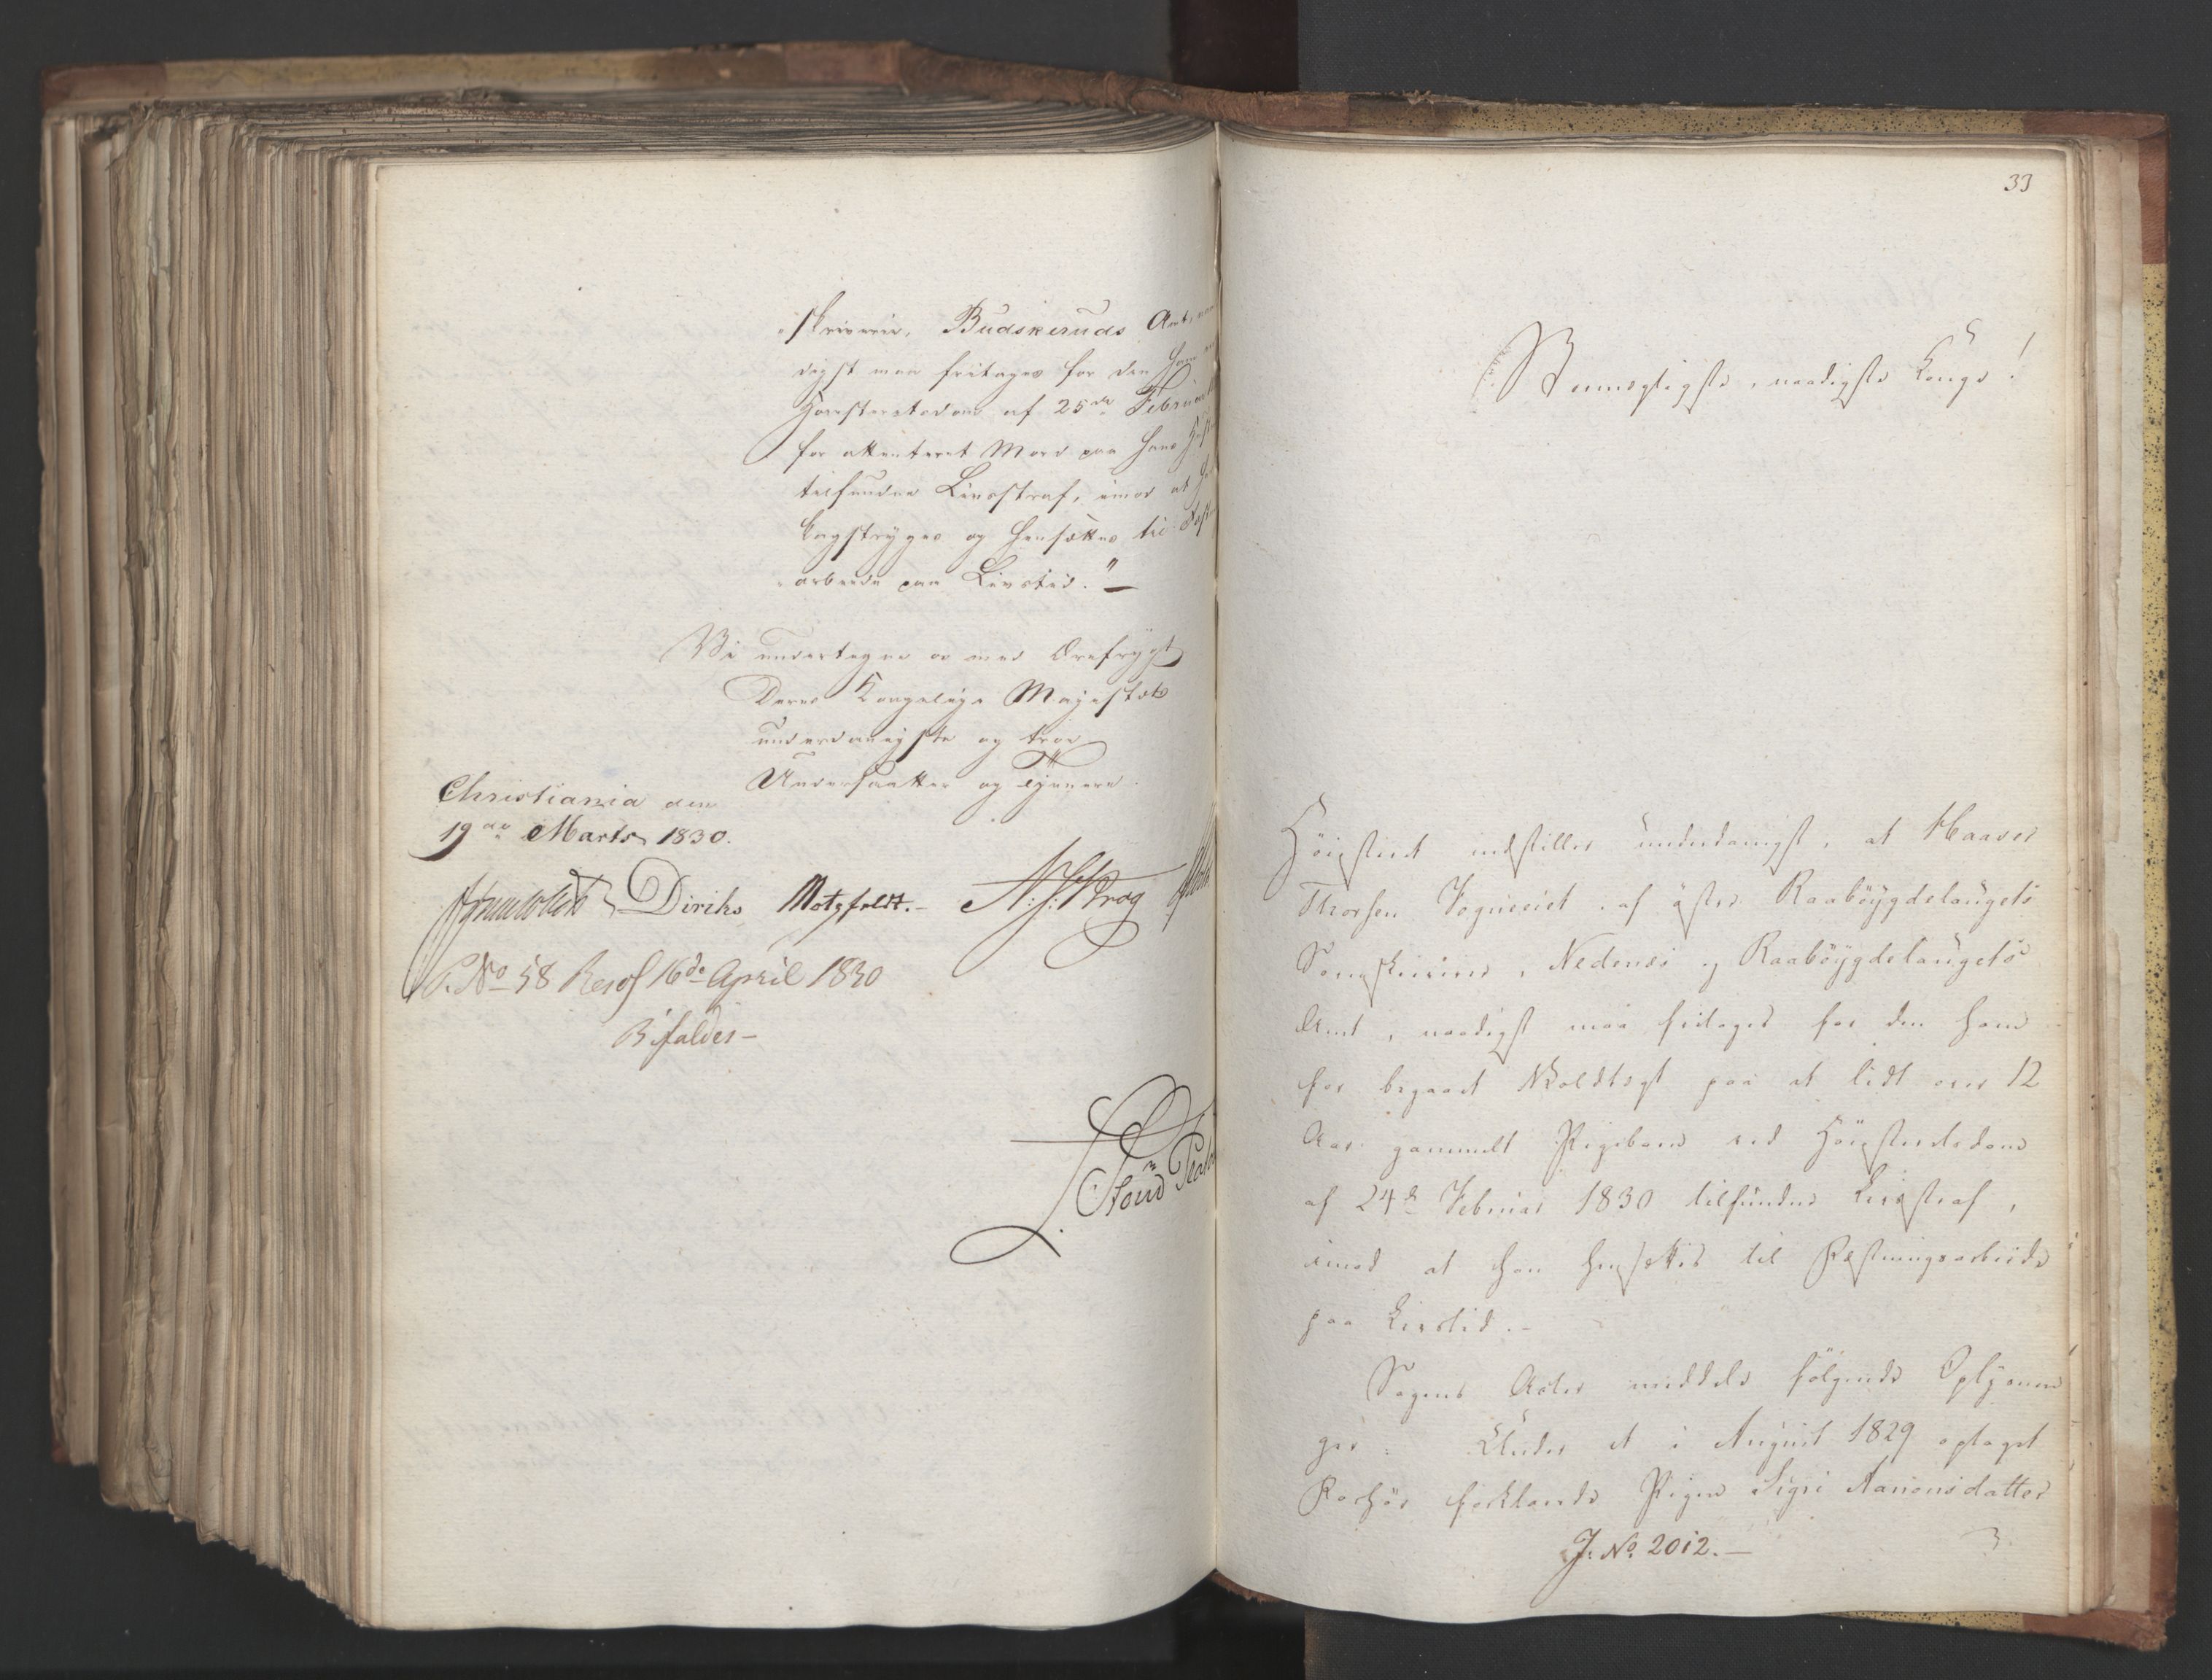 skriverie, Budskeruds Amt,
digst maa fritages for den ham
Høiesteretsdom af 25de Februar
for attenteret Mord paa hans
tilfundne Livsstraf, imod at
kagstryges og hensættes til
arbeide paa Livstid."—
Vi undertegne os med Ærefrygt
Deres Kongelige Majestæts
underdanigste og troe
Undersaatter og Tjenere.
Christiania den
19de Marts 1830.
Diriks Motzfeldt.- N. J. Krog
P. No 58 Resol 16de April 1830
Bifaldes—
33
Stormægtigste, naadigste Konge!
Høiesteret indstiller underdanigst, at Haaver
Thorsen Vegusdal af øster Raabøygdelaugets
Sorenskriverie, Nedenæs og Raabøygdelaugets
Amt, naadigst maa fritages for den ham
for begaaet Voldtægt paa et lidt over 12
Aar gammelt Pigebarn ved Høiesteretsdom
af 24de Februar 1830 tilfundne Livsstraf,
imod at han hensættes til Fæstningsarbeide
paa Livstid.-
Sagens Acter meddele følgende Oplysnin-
ger: Under et i August 1829 optaget
Forhør forklarede Pigen Sigri Aanonsdatter
J. No. 2012.—